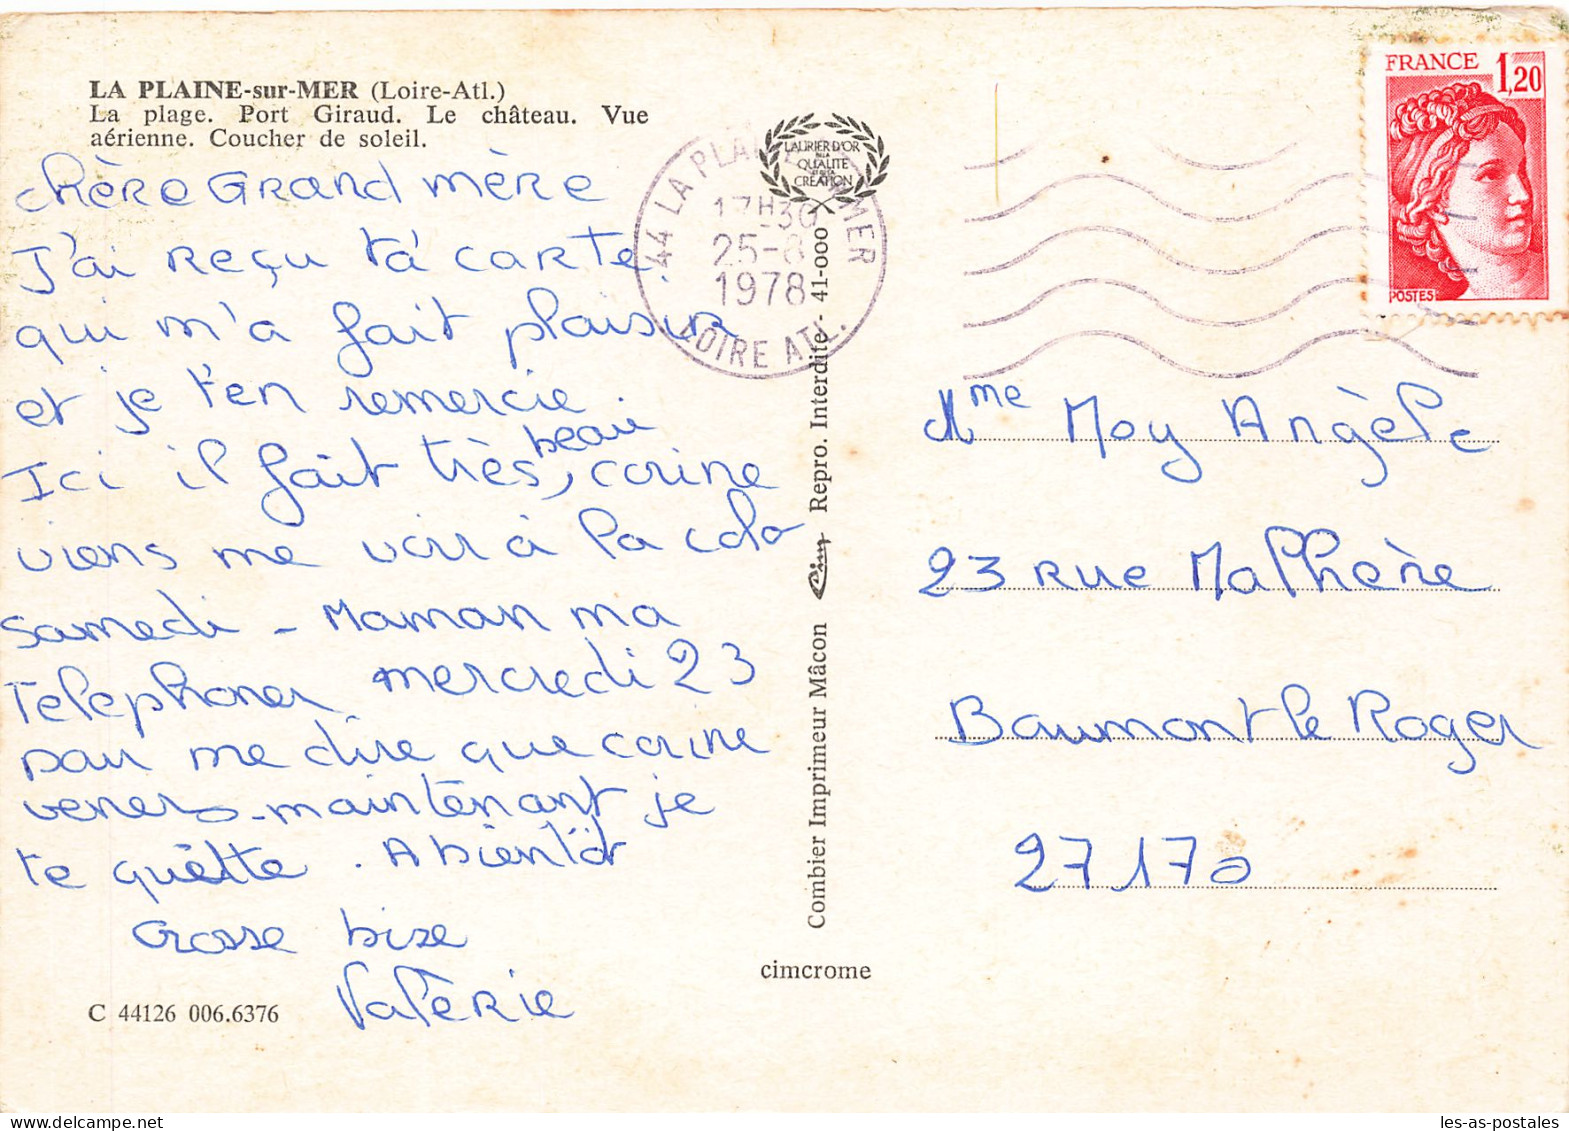 LA PLAINE-sur-MER (Loire-Atl.)
La plage. Port Giraud. Le château. Vue
aérienne. Coucher de soleil.
chère Grand mère
J'ai reçu ta carte
qui m'a fait plaisir
et je t'en remercie.
Ici il fait très beau, corine
viens me voir à la colo
samedi - Maman ma
Telephoner mercredi 23
pour me dire que corine
veners - maintenant je
te quètte. A bientôt
Grosse bise
Valèrie
C 44126 006.6376
44 LA PLAINE S MER
17H30
25-8
1978
LOIRE ATL.
LAURIER D'OR
DE LA
QUALITÉ
ET DE LA
CRÉATION
Combier Imprimeur Mâcon Cim Repro. Interdite - 41-000
cimcrome
FRANCE 1,20
POSTES
Mme Moy Angèle
23 rue Malhère
Baumont le Roger
27170
les-as-postales